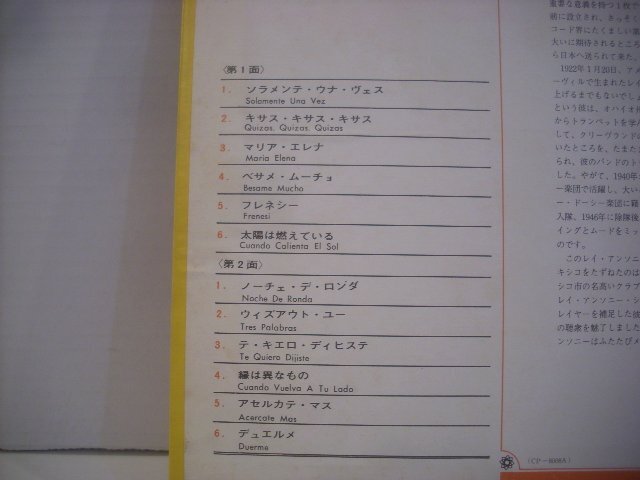 〈第1面〉
1. ソラメンテ・ウナ・ヴェス
Solamente Una Vez
2. キサス・キサス・キサス
Quizas, Quizas, Quizas
3. マリア・エレナ
Maria Elena
4. ベサメ・ムーチョ
Besame Mucho
5. フレネシー
Frenesi
6. 太陽は燃えている
Cuando Calienta El Sol
〈第2面〉
1. ノーチェ・デ・ロンダ
Noche De Ronda
2. ウィズアウト・ユー
Tres Palabras
3. テ・キエロ・ディヒステ
Te Quiero Dijiste
4. 縁は異なもの
Cuando Vuelva A Tu Lado
5. アセルカテ・マス
Acercate Mas
6. デュエルメ
Duerme
重要な意義を持つ1枚で
前に設立され、さっそく
コード界にたくましい第
大いに期待されるところ
ら日本へ送られて来た、
1922年1月20日、アメ
ーヴィルで生まれたレイ
上げるまでもないでしょ
という彼は、オハイオ州
からトランペットを学ん
して、クリーヴランドの
いたところを、たまたま
られ、彼のバンドのト
した。やがて、1940年
ー楽団で活躍し、大い
ー・ドーシー楽団に籍
入隊、1946年に除隊後
イングとムードをミッ
のです。
このレイ・アンソニ
キシコをたずねたのは
シコ市の名高いクラブ
レイ・アンソニー・シ
レイヤーを補足した彼
の聴衆を魅了しました
ンソニーはふたたびメ
(CP-8008A)